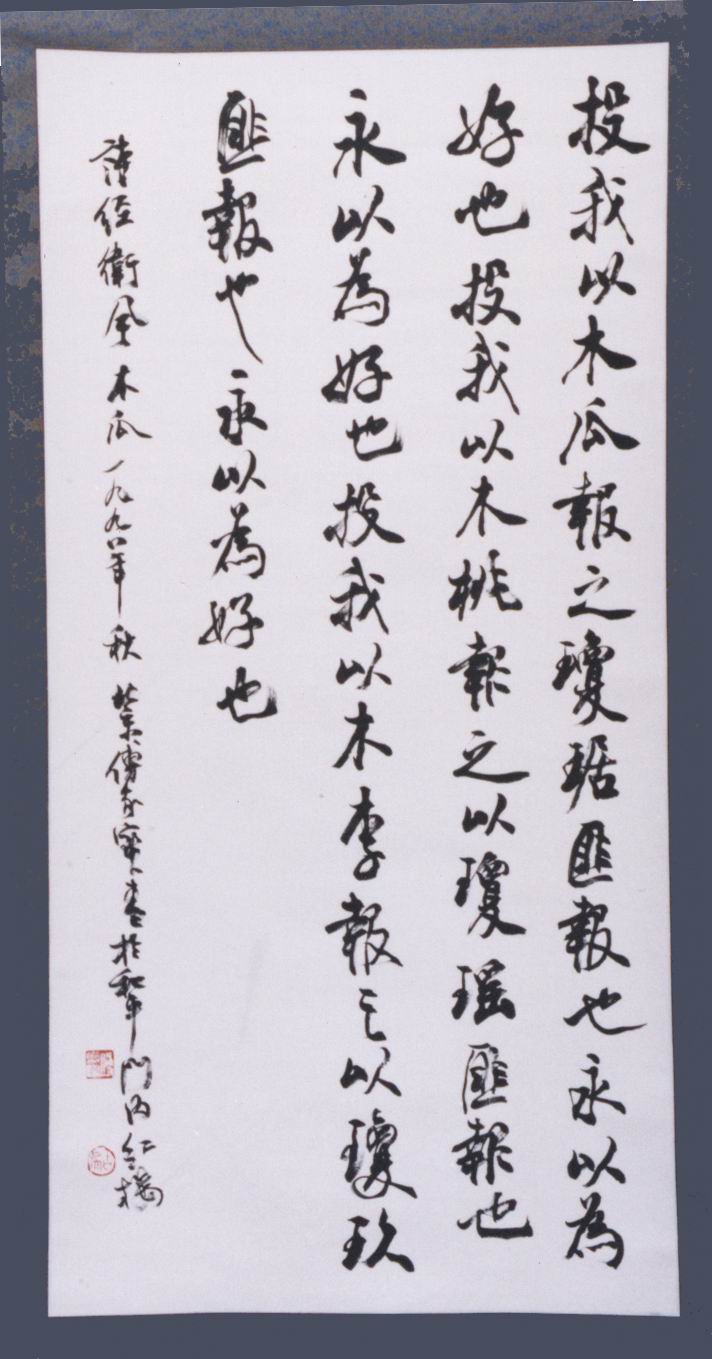 投我以木瓜報之瓊琚匪報也永以為
好也投我以木桃報之以瓊瑶匪報也
永以為好也投我以木李報之以瓊玖
匪報也永以為好也
詩經衛風木瓜一九九八年秋 於和平門内紅樓